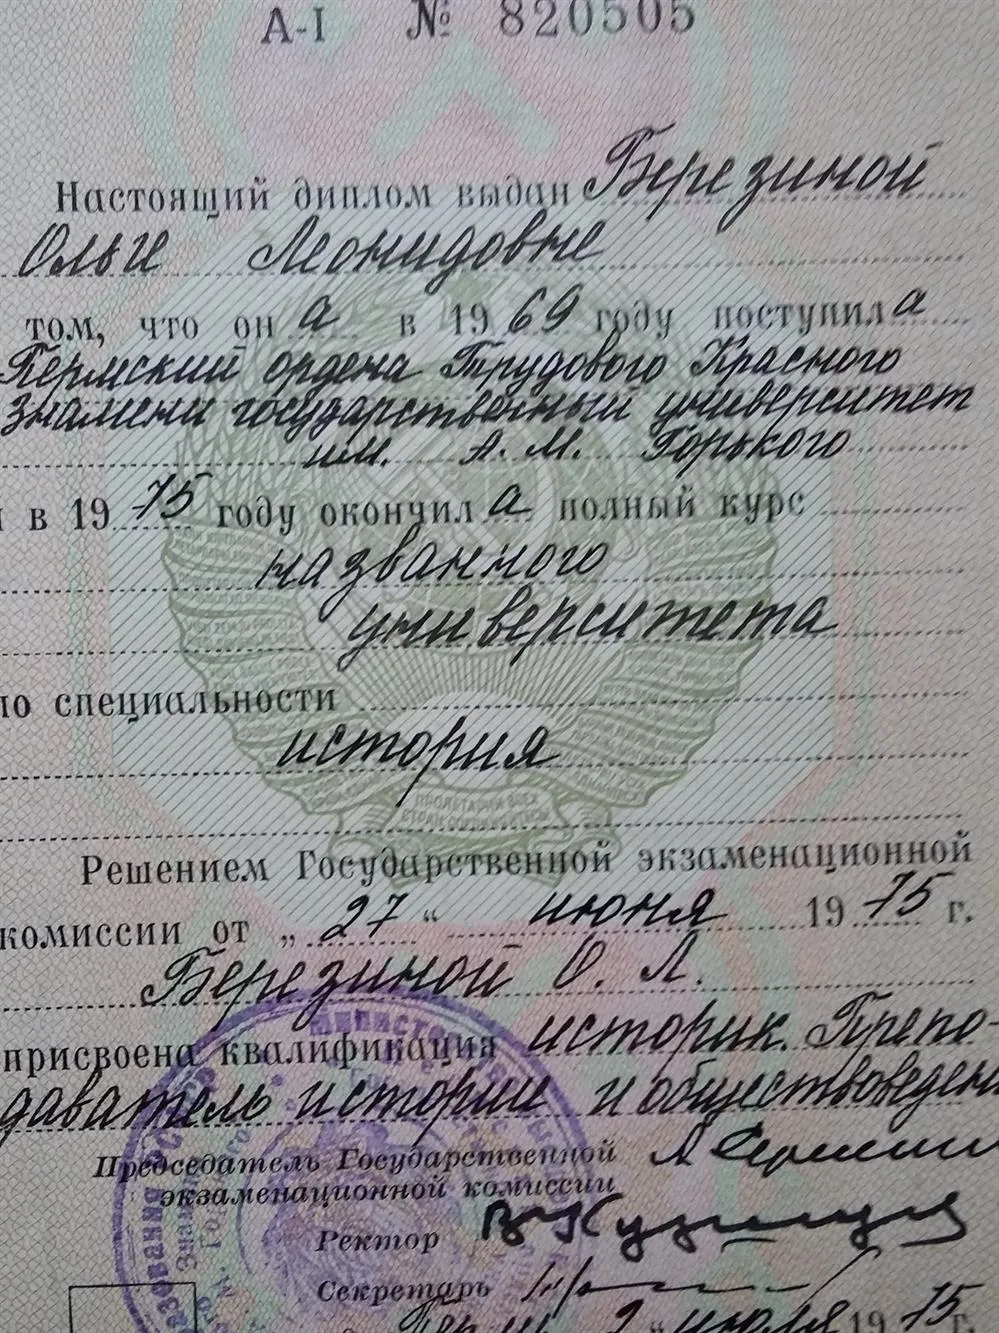 А-I № 820505
Настоящий диплом выдан Березиной
Ольге Леонидовне
том, что он а в 1969 году поступила
Пермский ордена Трудового Красного
Знамени государственный университет
им. А. М. Горького
в 1975 году окончила полный курс
названного
университета
по специальности
история
ПРОЛЕТАРИИ ВСЕХ
СТРАН СОЕДИНЯЙТЕСЬ
Решением Государственной экзаменационной
комиссии от „27“ июня 1975 г.
Березиной О. Л.
присвоена квалификация историк. Препо-
даватель истории и обществоведен
Председатель Государственной
экзаменационной комиссии
Ректор
Секретарь
2 „ июля 1975 г.